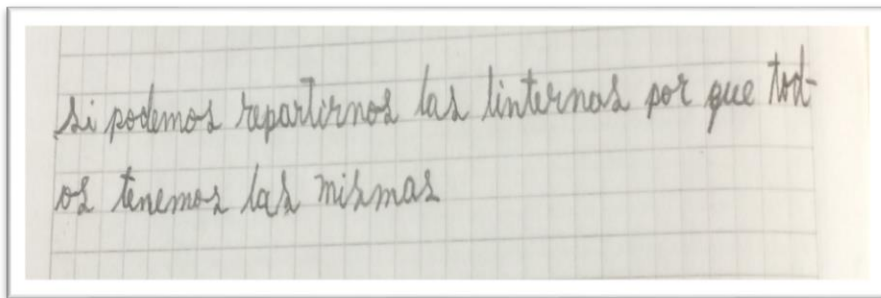 si podemos repartirnos las linternas por que tod-
os tenemos las mismas